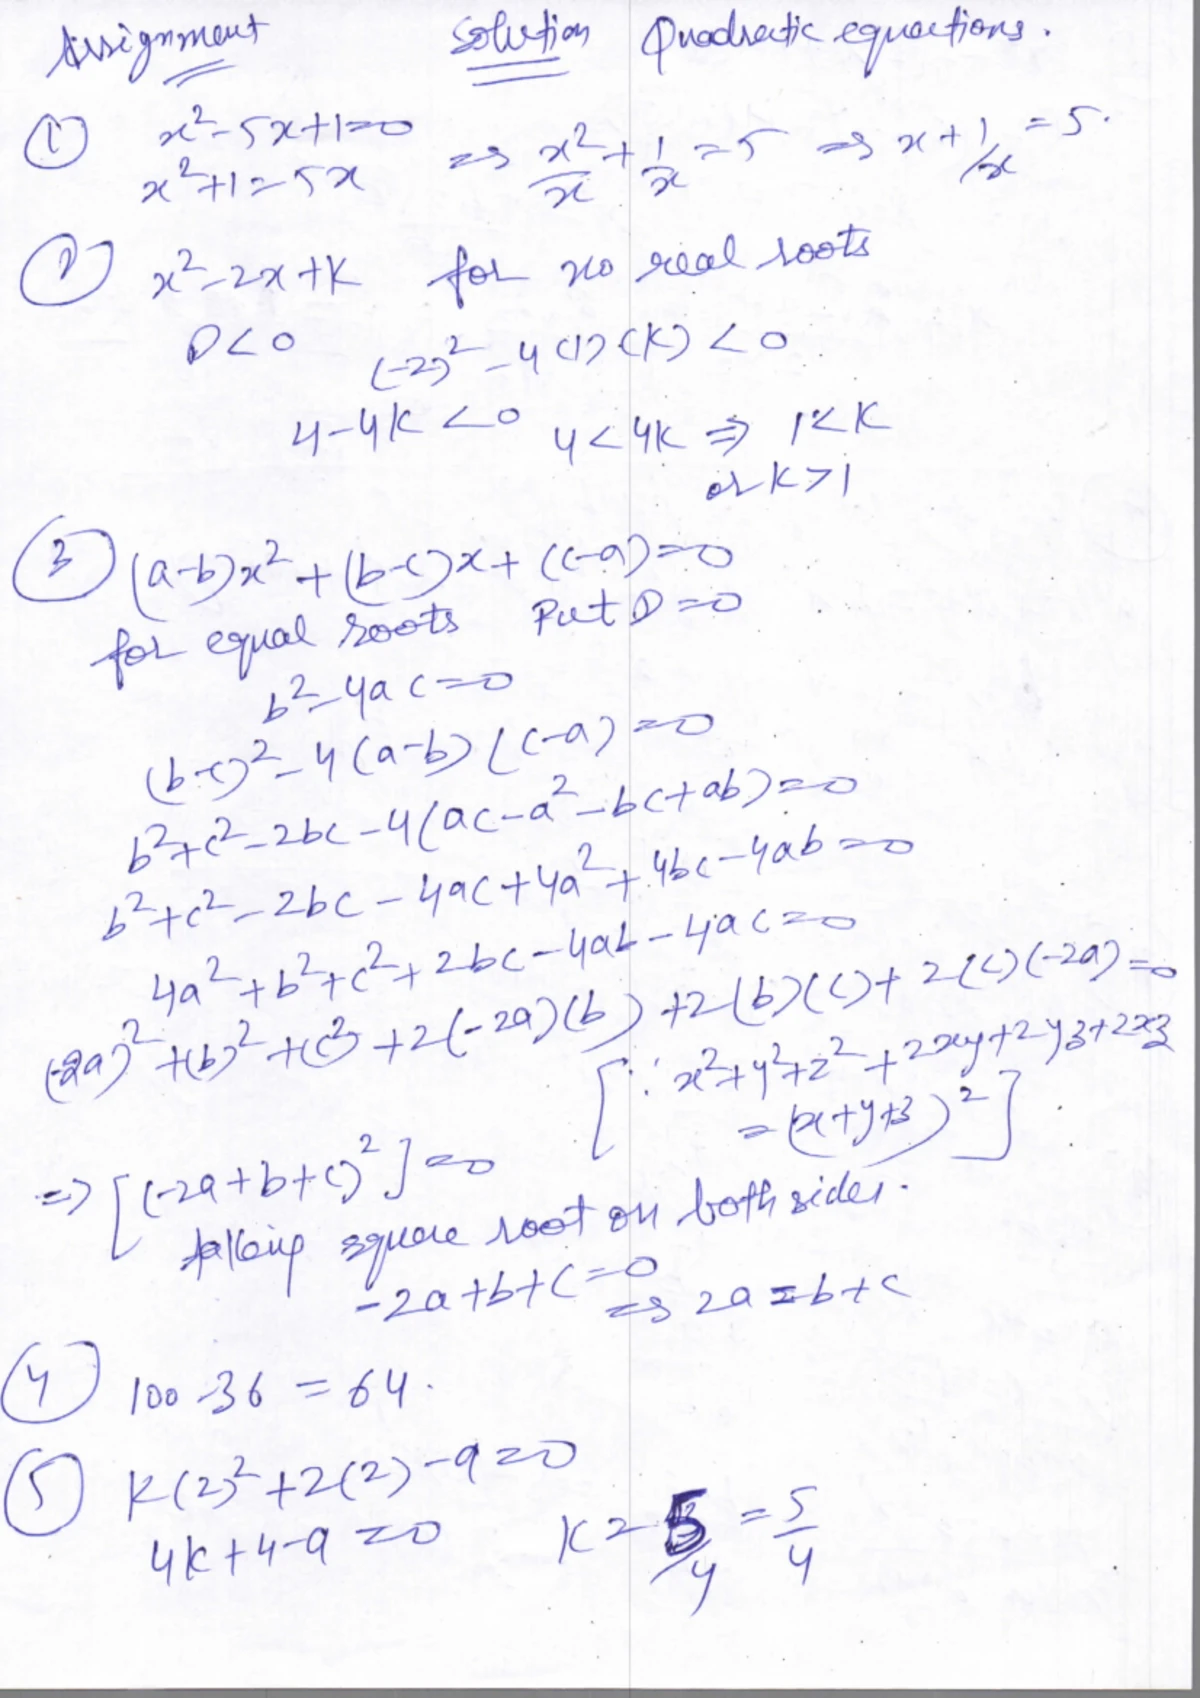 Assignment Solution Quadratic equations.
① x²-5x+1=0
x²+1=5x ⇒ x²/x + 1/x = 5 ⇒ x + 1/x = 5.
② x²-2x+K for no real roots
D<0 (-2)² - 4(1)(K) < 0
4-4K <0 4<4K ⇒ 1<K
or K>1
③ (a-b)x² + (b-c)x + (c-a)=0
for equal roots Put D=0
b²-4ac=0
(b-c)²-4(a-b)(c-a)=0
b²+c²-2bc-4(ac-a²-bc+ab)=0
b²+c²-2bc-4ac+4a²+4bc-4ab=0
4a²+b²+c²+2bc-4ab-4ac=0
(-2a)²+(b)²+(c²)+2(-2a)(b)+2(b)(c)+2(c)(-2a)=0
[∵ x²+y²+z²+2xy+2yz+2xz
=(x+y+z)²]
⇒ [(-2a+b+c)²]=0
taking square root on both sides.
-2a+b+c=0 ⇒ 2a=b+c
④ 100-36 = 64.
⑤ K(2)²+2(2)-9=0
4K+4-9=0 K=5/4 = 5/4